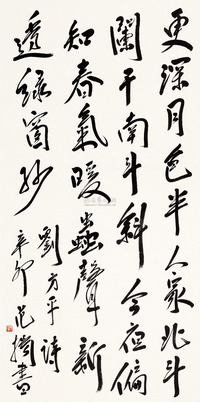 更深月色半人家北斗
闌干南斗斜今夜偏
知春氣暖蟲聲新
透綠窗紗
劉方平詩
辛卯范擷書